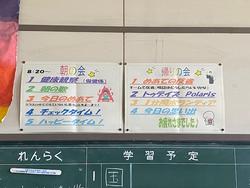 8:20～ 朝の会
1 健康観察（保健係）
2 朝の歌
3 今日のめあて
4 チェックタイム！
5 ハッピータイム！
帰りの会
1 めあての反省
2 トゥデイズ Polaris
3 1分間ボランティア
4 今日の思い出
れんらく
学習予定
1 国